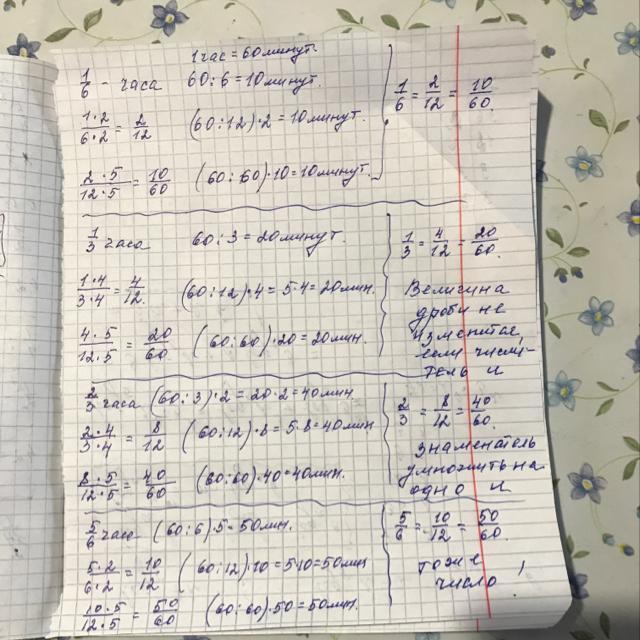 1 час = 60 минут.
1/6 - часа 60 : 6 = 10 минут.
1·2/6·2 = 2/12 (60 : 12)·2 = 10 минут.
2·5/12·5 = 10/60 (60 : 60)·10 = 10 минут.
1/6 = 2/12 = 10/60.
1/3 часа 60 : 3 = 20 минут.
1·4/3·4 = 4/12. (60 : 12)·4 = 5·4 = 20 мин.
4·5/12·5 = 20/60 (60 : 60)·20 = 20 мин.
1/3 = 4/12 = 20/60.
Величина
дроби не
изменится,
если числи-
тель и
2/3 часа (60 : 3)·2 = 20·2 = 40 мин.
2·4/3·4 = 8/12 (60 : 12)·8 = 5·8 = 40 мин
8·5/12·5 = 40/60 (60 : 60)·40 = 40 мин.
2/3 = 8/12 = 40/60.
знаменатель
умножить на
одно и
5/6 часа (60 : 6)·5 = 50 мин.
5·2/6·2 = 10/12 (60 : 12)·10 = 5·10 = 50 мин
10·5/12·5 = 50/60 (60 : 60)·50 = 50 мин.
5/6 = 10/12 = 50/60.
тоже
число!